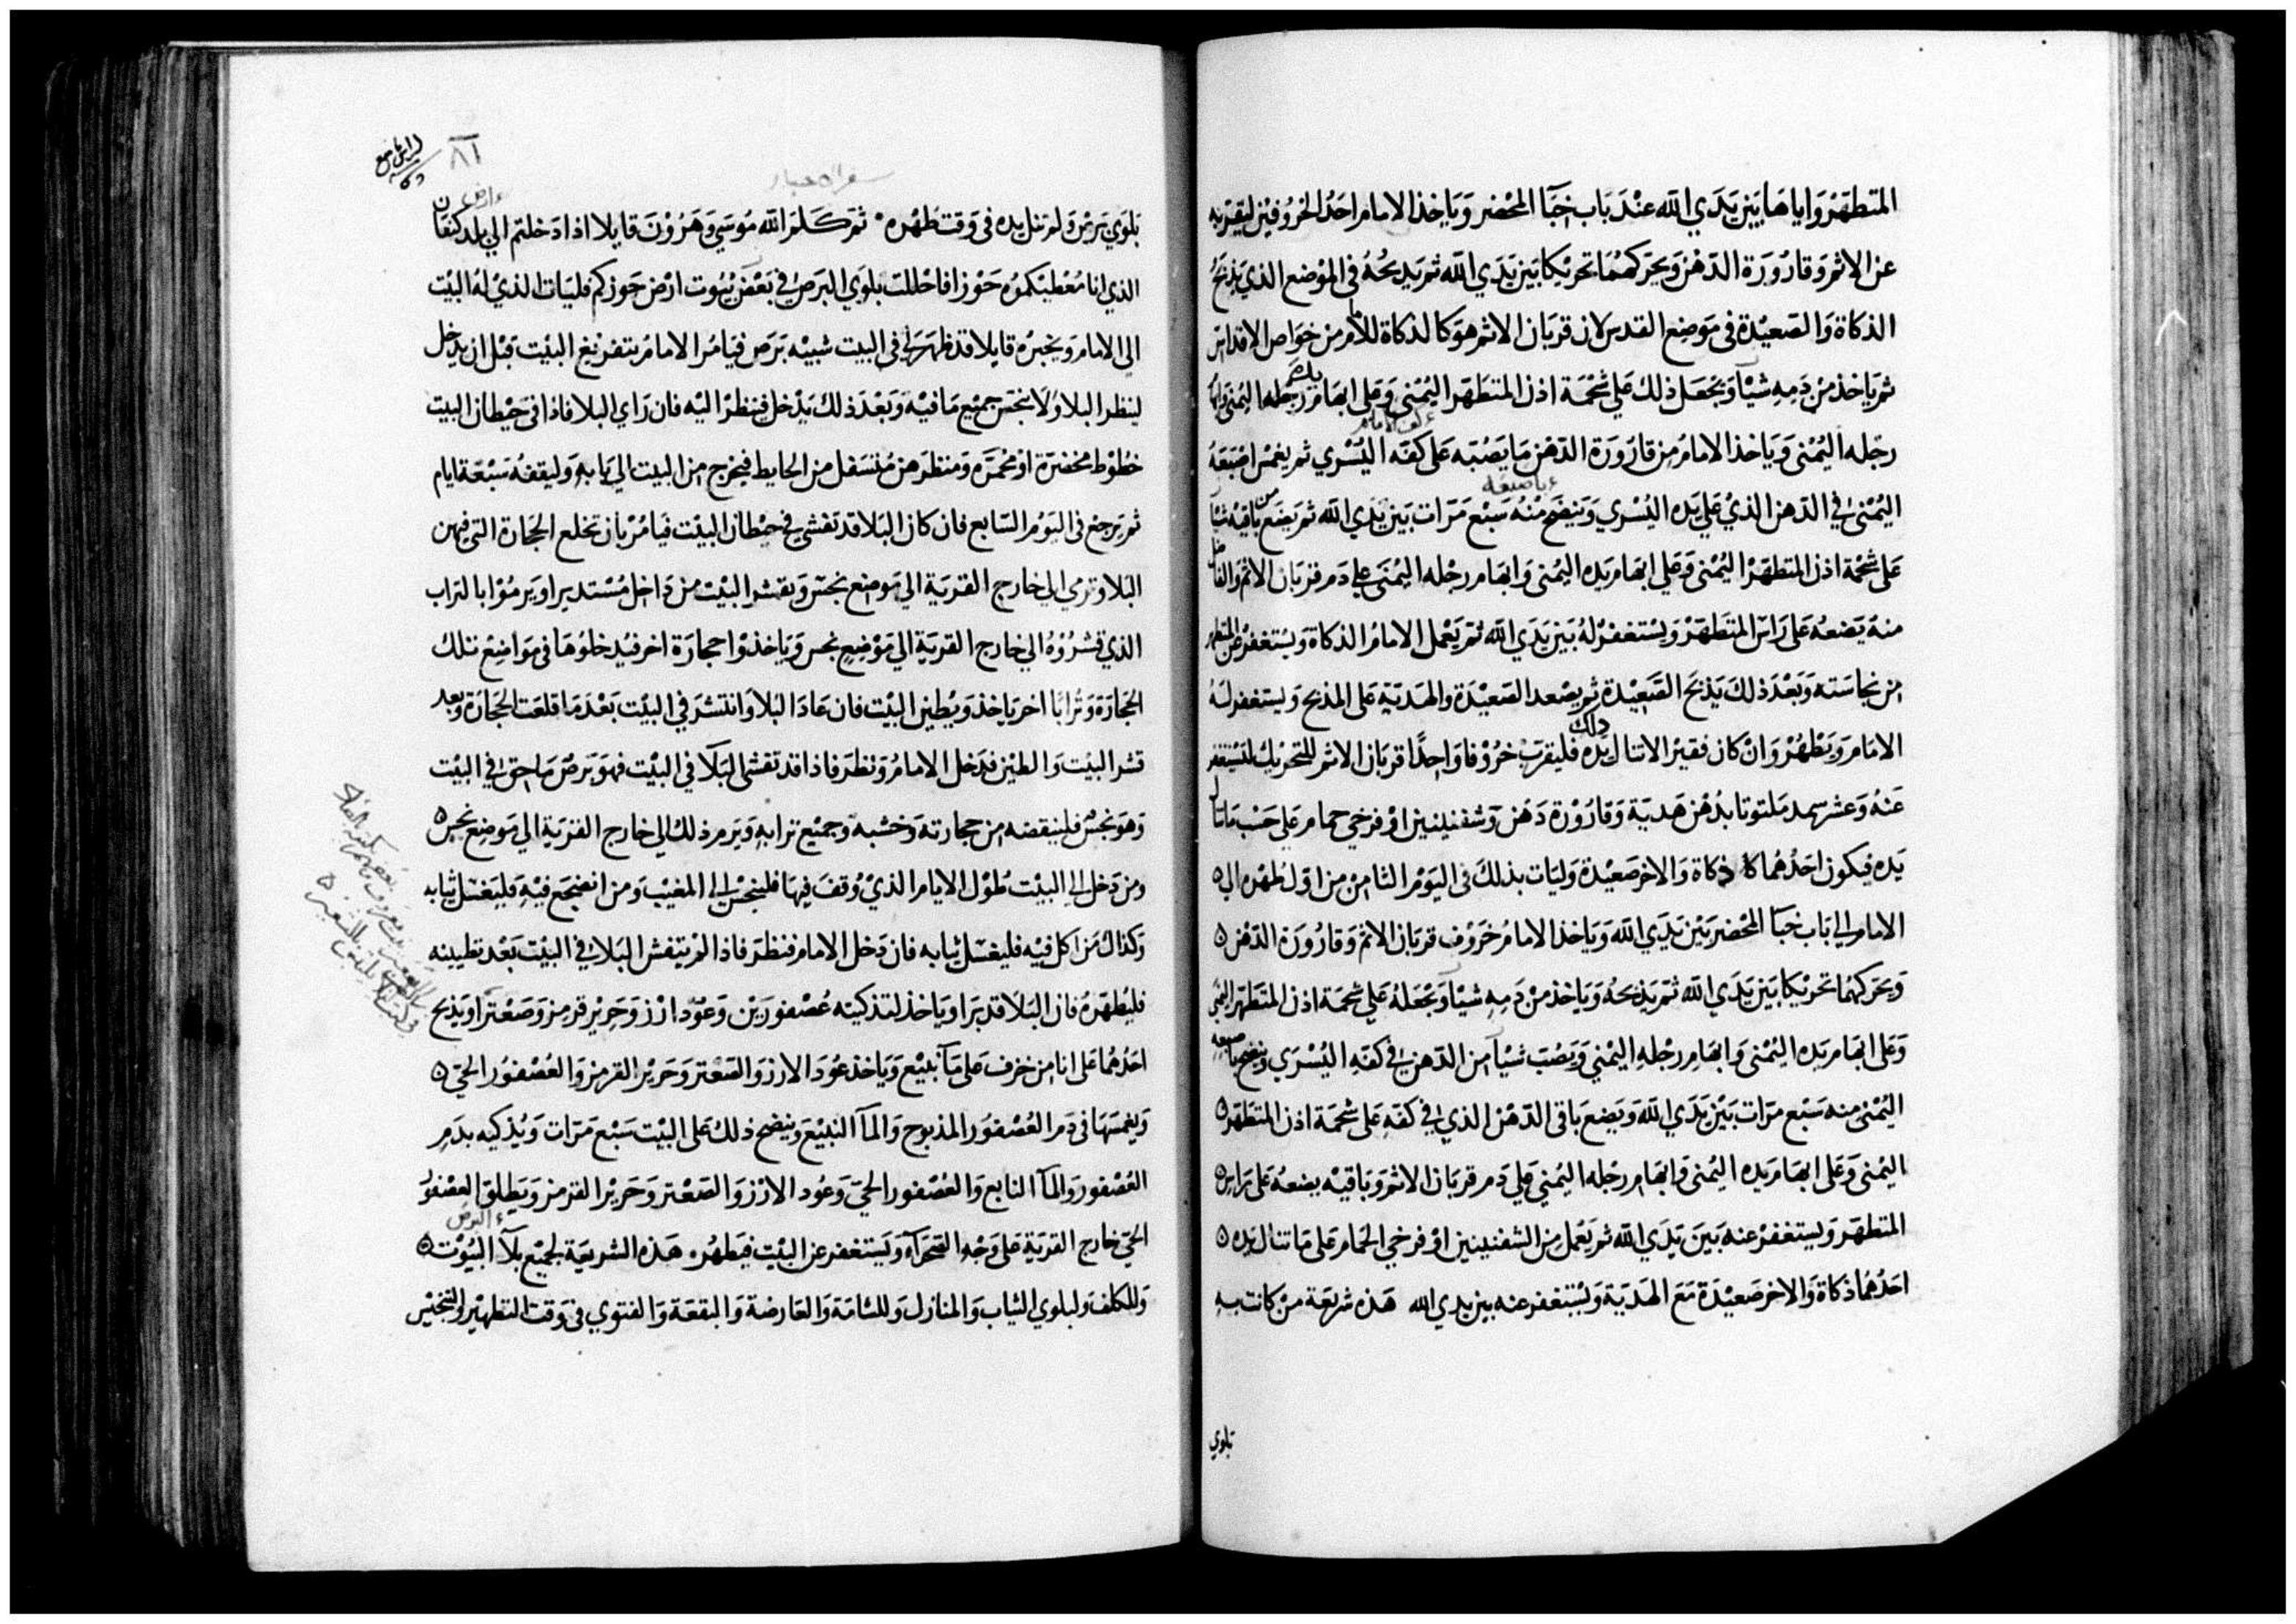 المتطهر واياها بين يدي الله عند باب خبا المحضر وياخذ الامام احد الخروفين ليقربه
عن الاثم وقارورة الدهن ويحركهما تحريكا بين يدي الله ثم يذبحه في الموضع الذي يذبح
الذكاة والصعيدة في موضع القدس لان قربان الاثم هو كالذكاة للامام من خواص الاقداس
ثم ياخذ من دمه شيآ ويجعل ذلك علي شحمة اذن المتطهر اليمني وعلى ابهام يده اليمنى وابهام
رجله اليمنى وياخذ الامام من قارورة الدهن ما يصبه على كفه اليسري ثم يغمس اصبعه
اليمنى في الدهن الذي علي يده اليسري وينضح منه سبع مرات بين يدي الله ثم يضع من باقيه شيآ
على شحمة اذن المتطهر اليمنى وعلى ابهام يده اليمنى وابهام رجله اليمنى علي دم قربان الاثم والفاضل
منه يضعه على راس المتطهر ويستغفر له بين يدي الله ثم يعمل الامام الذكاة ويستغفر عن المتطهر
من نجاسته وبعد ذلك يذبح الصعيدة ثم يصعد الصعيدة والهدية على المذبح ويستغفر له
الامام ويطهر وان كان فقيرا لا تنال يده ذلك فليقرب خروفا واحدا قربان الاثم للتحريك لتستغفر
عنه وعشر سميد ملتوتا بدهن هدية وقارورة دهن وشفنينين او فرخي حمام على حسب ما تنال
يده فيكون احدهما ذكاة والاخر صعيدة وليات بذلك في اليوم الثامن من اول طهره الي
الامام الي باب خبآ المحضر بين يدي الله وياخذ الامام خروف قربان الاثم وقارورة الدهن
ويحركهما تحريكا بين يدي الله ثم يذبحه وياخذ من دمه شيآ ويجعله علي شحمة اذن المتطهر اليمنى
وعلى ابهام يده اليمنى وابهام رجله اليمني ويصب شيآ من الدهن في كفه اليسري وينضح باصبعه
اليمنى منه سبع مرات بين يدي الله ويضع باقي الدهن الذي في كفه على شحمة اذن المتطهر
اليمنى وعلى ابهام يده اليمنى وابهام رجله اليمني علي دم قربان الاثم وباقيه يضعه على راس
المتطهر وليستغفر عنه بين يدي الله ثم يعمل من الشفنينين او فرخي الحمام على ما تنال يده
احدهما ذكاة والاخر صعيدة مع الهدية ويستغفر عنه بين يدي الله هذه شريعة من كانت به
بلوي
سفر الاحبار
٨١
بلوي برص ولم تنل يده في وقت طهره ثم كلم الله موسي وهرون قايلا اذا دخلتم الي بلد كنعان
الذي انا معطيكموه حوزا فاحللت بلوي البرص في بعض بيوت ارض حوزكم فليات الذي له البيت
الي الامام ويخبره قايلا قد ظهر لي في البيت شبيه برص فيامر الامام بتفريغ البيت قبل ان يدخل
لينظر البلا ولا ينجس جميع ما فيه وبعد ذلك يدخل فينظر اليه فان راي البلا فاذا في حيطان البيت
خطوط مخضرة او محمرة ومنظرهن متسفل من الحايط فيخرج من البيت الي بابه وليقفه سبعة ايام
ثم يرجع في اليوم السابع فان كان البلا قد تفشي في حيطان البيت فيامر بان تخلع الحجارة التي فيهن
البلا وترمي الي خارج القرية الي موضع نجس ويقشر البيت من داخل مستديرا ويرموا بالتراب
الذي قشروه الي خارج القرية الي موضع نجس وياخذوا حجارة اخر فيدخلوها في مواضع تلك
الحجارة وترابا اخر ياخذ ويطين البيت فان عاد البلا وانتشر في البيت بعد ما قلعت الحجارة وبعد
قشر البيت والطين فدخل الامام ونظر فاذا قد تفشى البلآ في البيت فهو برص ماحق في البيت
وهو نجس فلينقضه من حجارته وخشبه وجميع ترابه ويرم ذلك الي خارج القرية الي موضع نجس
ومن دخل الي البيت طول الايام الذي وقف فيها فلينجس الي المغيب ومن انضجع فيه فليغسل ثيابه
وكذاك من اكل فيه فليغسل ثيابه فان دخل الامام فنظر فاذا لم يتفش البلاء في البيت بعد تطيينه
فليطهره فان البلا قد برا وياخذ لتذكيته عصفورين وعود ارز وحرير قرمز وصعترا ويذبح
احدهما على انا من خزف على مآ نبيع وياخذ عود الارز والصعتر وحرير القرمز والعصفور الحي
ويغمسها في دم العصفور المذبوح والمآ النبيع وينضح ذلك على البيت سبع مرات ويذكيه بدم
العصفور والمآ النابع والعصفور الحي وعود الارز والصعتر وحرير القرمز ويطلق العصفور
الحي خارج القرية على وجه الصحرآ ويستغفر عن البيت فيطهره هذه الشريعة لجميع بلآ البيوت
وللكلف ولبلوي الثياب والمنازل وللشامة والعارضة والبقعة والفتوي في وقت التطهير والتنجيس